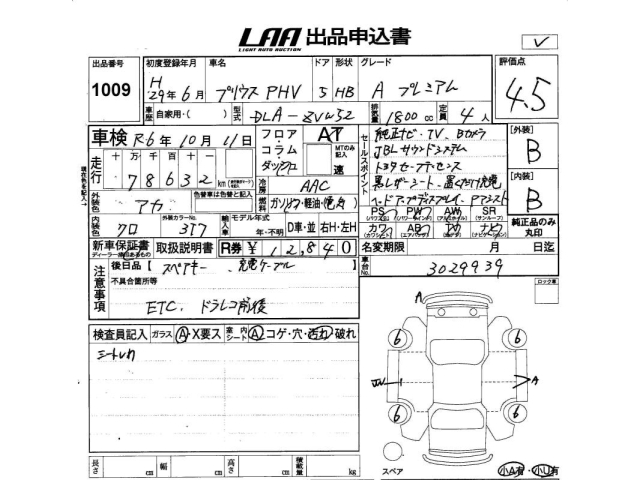 LAA 出品申込書
LIGHT AUTO AUCTION
出品番号
1009
初度登録年月 車名 ドア 形状 グレード
H 29年6月 プリウス PHV 5 HB A プレミアム
評価点
4.5
車歴 自家用・( ) 型式 DLA-ZVW52 排気量 1800 cc 定員 4人
車検 R6年10月11日
フロア・コラム・ダッシュ AT
MTのみ記入 速
セールスポイント
純正ナビ・TV、Bカメラ
JBLサウンドシステム
トヨタセーフティセンス
黒レザーシート
ヘッドアップディスプレイ
[外装] B
[内装] B
走行 十万 万 千 百 十 一
78632 km
冷房 AAC
燃料 ガソリン・軽油・
外装色 アカ
色替車は色替と記入
内装色 クロ
外装カラーNo. 3T7
輸入車 モデル年式 年・不明 D車・並 右H・左H
PS PW AW SR
(パワステ) (パワーウインド) (サンルーフ)
カワ AB TV ナビ
(エアバッグ) (ナビゲーション)
純正品のみ丸印
新車保証書 取扱説明書 R券 ¥12,840
ディーラー捺印あるもの
名変期限 月 日迄
注意事項
後日品【スペアキー、充電ケーブル
不具合箇所等
ETC、ドラレコ前後
車台No. 3029939
検査員記入 ガラス A・X要ス 室内シート A コゲ・穴・汚れ・破れ
シートしわ
ロック車
A
6 6
A
6 6
スペア
小A有・小U有
長さ cm 幅 cm 高さ cm 積載量 kg